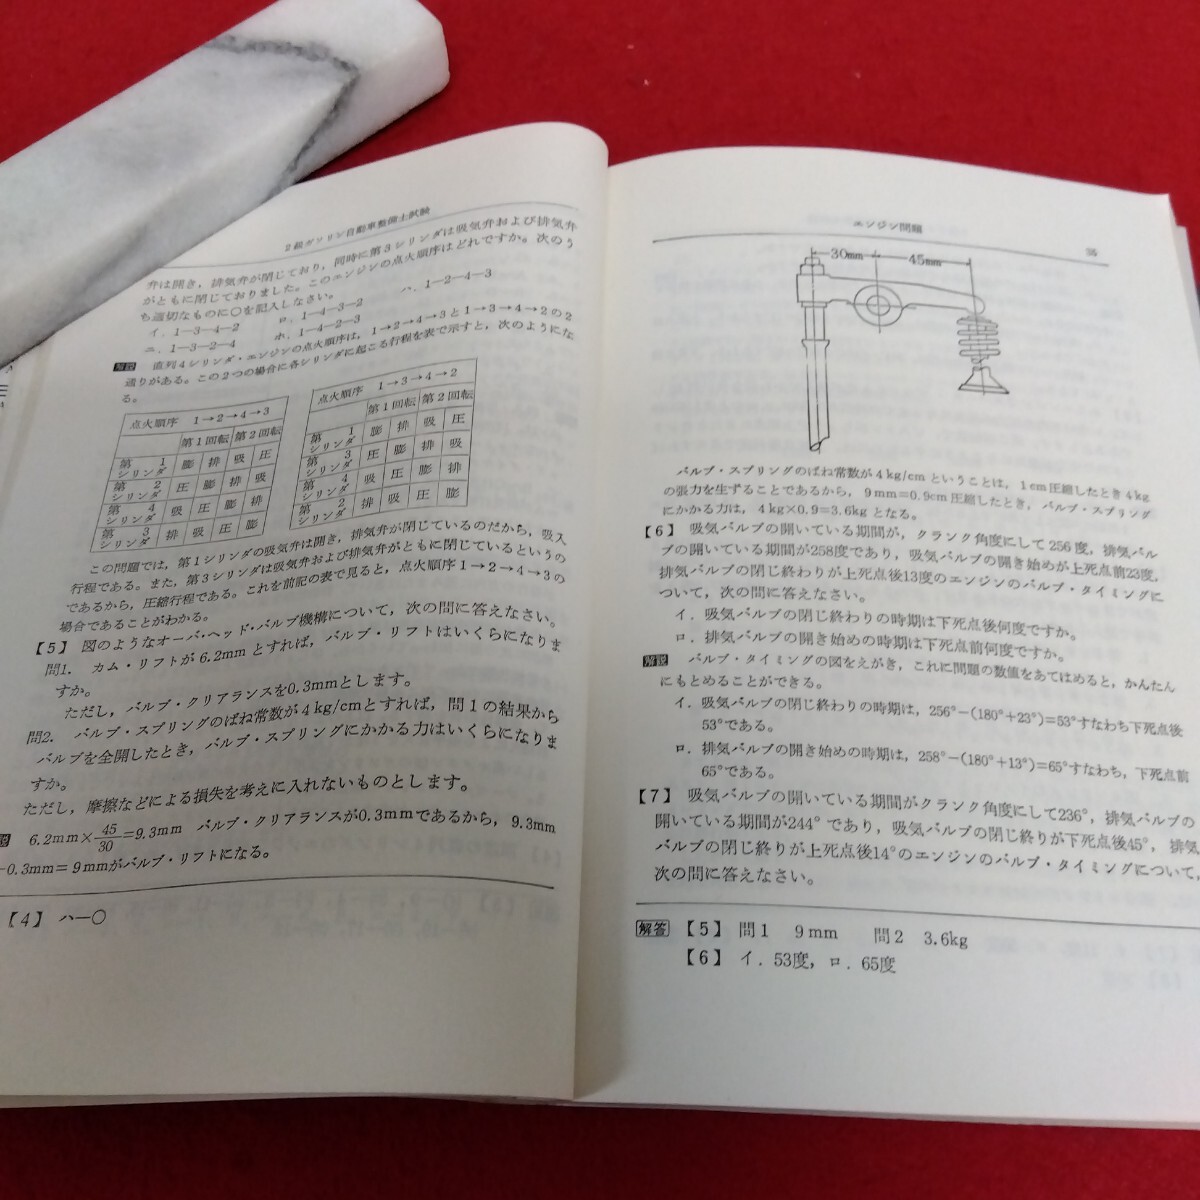 2級ガソリン自動車整備士試験
弁は開き，排気弁が閉じており，同時に第3シリンダは吸気弁および排気弁
がともに閉じておりました。このエンジンの点火順序はどれですか。次のう
ち適切なものに○を記入しなさい。
イ．1—3—4—2　ロ．1—4—3—2　ハ．1—2—4—3
ニ．1—3—2—4　ホ．1—4—2—3
解説　直列4シリンダ・エンジンの点火順序は，1→2→4→3と1→3→4→2の2
通りがある。この2つの場合に各シリンダに起こる行程を表で示すと，次のようにな
る。
点火順序　1→2→4→3
第1回転　第2回転
第1シリンダ　膨　排　吸　圧
第2シリンダ　圧　膨　排　吸
第4シリンダ　吸　圧　膨　排
第3シリンダ　排　吸　圧　膨
点火順序　1→3→4→2
第1回転　第2回転
第1シリンダ　膨　排　吸　圧
第3シリンダ　圧　膨　排　吸
第4シリンダ　吸　圧　膨　排
第2シリンダ　排　吸　圧　膨
この問題では，第1シリンダの吸気弁は開き，排気弁が閉じているのだから，吸入
行程である。また，第3シリンダは吸気弁および排気弁がともに閉じているというの
であるから，圧縮行程である。これを前記の表で見ると，点火順序1→2→4→3の
場合であることがわかる。
【5】 図のようなオーバ・ヘッド・バルブ機構について，次の問に答えなさい。
問1．　カム・リフトが6.2mmとすれば，バルブ・リフトはいくらになりま
すか。
ただし，バルブ・クリアランスを0.3mmとします。
問2．　バルブ・スプリングのばね常数が4kg/cmとすれば，問1の結果から
バルブを全開したとき，バルブ・スプリングにかかる力はいくらになりま
すか。
ただし，摩擦などによる損失を考えに入れないものとします。
説　6.2mm×45/30=9.3mm　バルブ・クリアランスが0.3mmであるから，9.3mm
−0.3mm=9mmがバルブ・リフトになる。
【4】 ハ—○
エンジン問題
30mm　45mm
バルブ・スプリングのばね常数が4kg/cmということは，1cm圧縮したとき4kg
の張力を生ずることであるから，9mm=0.9cm圧縮したとき，バルブ・スプリング
にかかる力は，4kg×0.9=3.6kgとなる。
【6】 吸気バルブの開いている期間が，クランク角度にして256度，排気バル
ブの開いている期間が258度であり，吸気バルブの開き始めが上死点前23度，
排気バルブの閉じ終わりが上死点後13度のエンジンのバルブ・タイミングに
ついて，次の問に答えなさい。
イ．吸気バルブの閉じ終わりの時期は下死点後何度ですか。
ロ．排気バルブの開き始めの時期は下死点前何度ですか。
解説　バルブ・タイミングの図をえがき，これに問題の数値をあてはめると，かんたん
にもとめることができる。
イ．吸気バルブの閉じ終わりの時期は，256°−(180°+23°)=53°すなわち下死点後
53°である。
ロ．排気バルブの開き始めの時期は，258°−(180°+13°)=65°すなわち，下死点前
65°である。
【7】 吸気バルブの開いている期間がクランク角度にして236°，排気バルブの
開いている期間が244°であり，吸気バルブの閉じ終りが下死点後45°，排気
バルブの閉じ終りが上死点後14°のエンジンのバルブ・タイミングについて，
次の問に答えなさい。
解答 【5】 問1　9mm　問2　3.6kg
【6】 イ．53度，ロ．65度